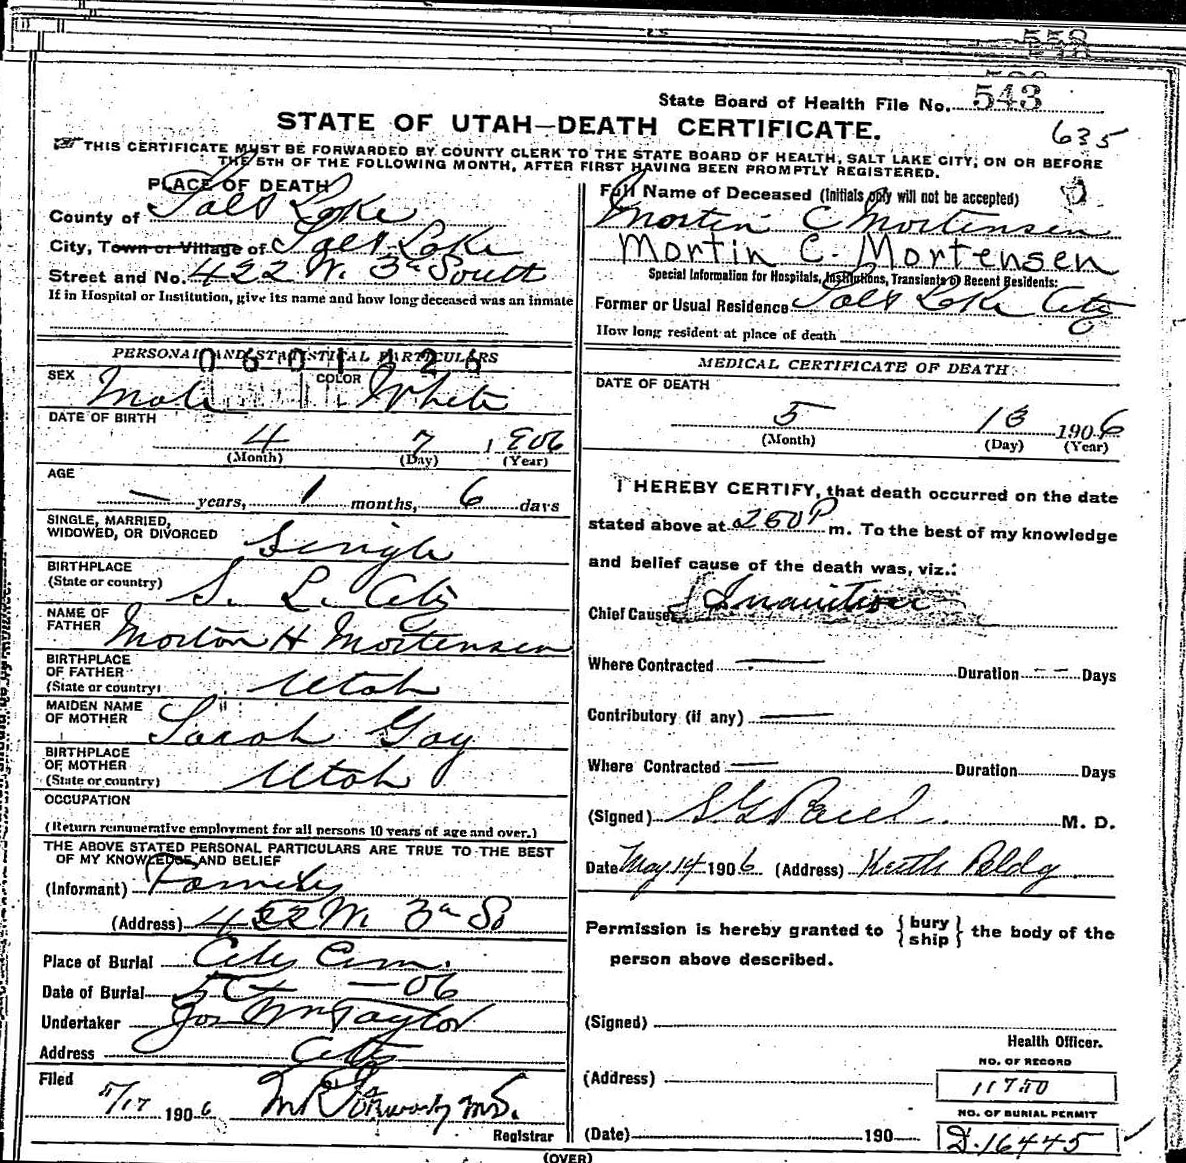 543
State Board of Health File No.
STATE OF UTAH—DEATH CERTIFICATE.
635
THIS CERTIFICATE MUST BE FORWARDED BY COUNTY CLERK TO THE STATE BOARD OF HEALTH, SALT LAKE CITY, ON OR BEFORE
THE 5TH OF THE FOLLOWING MONTH, AFTER FIRST HAVING BEEN PROMPTLY REGISTERED.
PLACE OF DEATH
County of Salt Lake
City, Town or Village of Salt Lake
Street and No. 422 W. 3d South
If in Hospital or Institution, give its name and how long deceased was an inmate
PERSONAL AND STATISTICAL PARTICULARS
0601426
SEX Male COLOR White
DATE OF BIRTH
4 7 1906
(Month) (Day) (Year)
AGE
— years, 1 months, 6 days
SINGLE, MARRIED,
WIDOWED, OR DIVORCED Single
BIRTHPLACE
(State or country) S. L. City
NAME OF
FATHER Morton H Mortensen
BIRTHPLACE
OF FATHER
(State or country) Utah
MAIDEN NAME
OF MOTHER Sarah Gay
BIRTHPLACE
OF MOTHER
(State or country) Utah
OCCUPATION
(Return remunerative employment for all persons 10 years of age and over.)
THE ABOVE STATED PERSONAL PARTICULARS ARE TRUE TO THE BEST
OF MY KNOWLEDGE AND BELIEF
(Informant) Family
(Address) 422 W. 3d So
Place of Burial City Cem.
Date of Burial — 06
Undertaker Jos Wm Taylor
Address City
Filed
5/17 1906 M.D.
Registrar
(OVER)
Full Name of Deceased (Initials only will not be accepted)
Mortin C Mortensen
Mortin C. Mortensen
Special Information for Hospitals, Institutions, Transients or Recent Residents:
Former or Usual Residence Salt Lake City
How long resident at place of death
MEDICAL CERTIFICATE OF DEATH
DATE OF DEATH
5 13 1906
(Month) (Day) (Year)
I HEREBY CERTIFY, that death occurred on the date
stated above at 250 P m. To the best of my knowledge
and belief cause of the death was, viz.:
Chief Cause Inanition
Where Contracted — Duration -- Days
Contributory (if any) —
Where Contracted — Duration Days
(Signed) M. D.
Date May 14 1906 (Address) Keith Bldg
Permission is hereby granted to { bury
ship } the body of the
person above described.
(Signed)
Health Officer.
NO. OF RECORD
(Address) 11750
NO. OF BURIAL PERMIT
(Date) 190 D. 16445